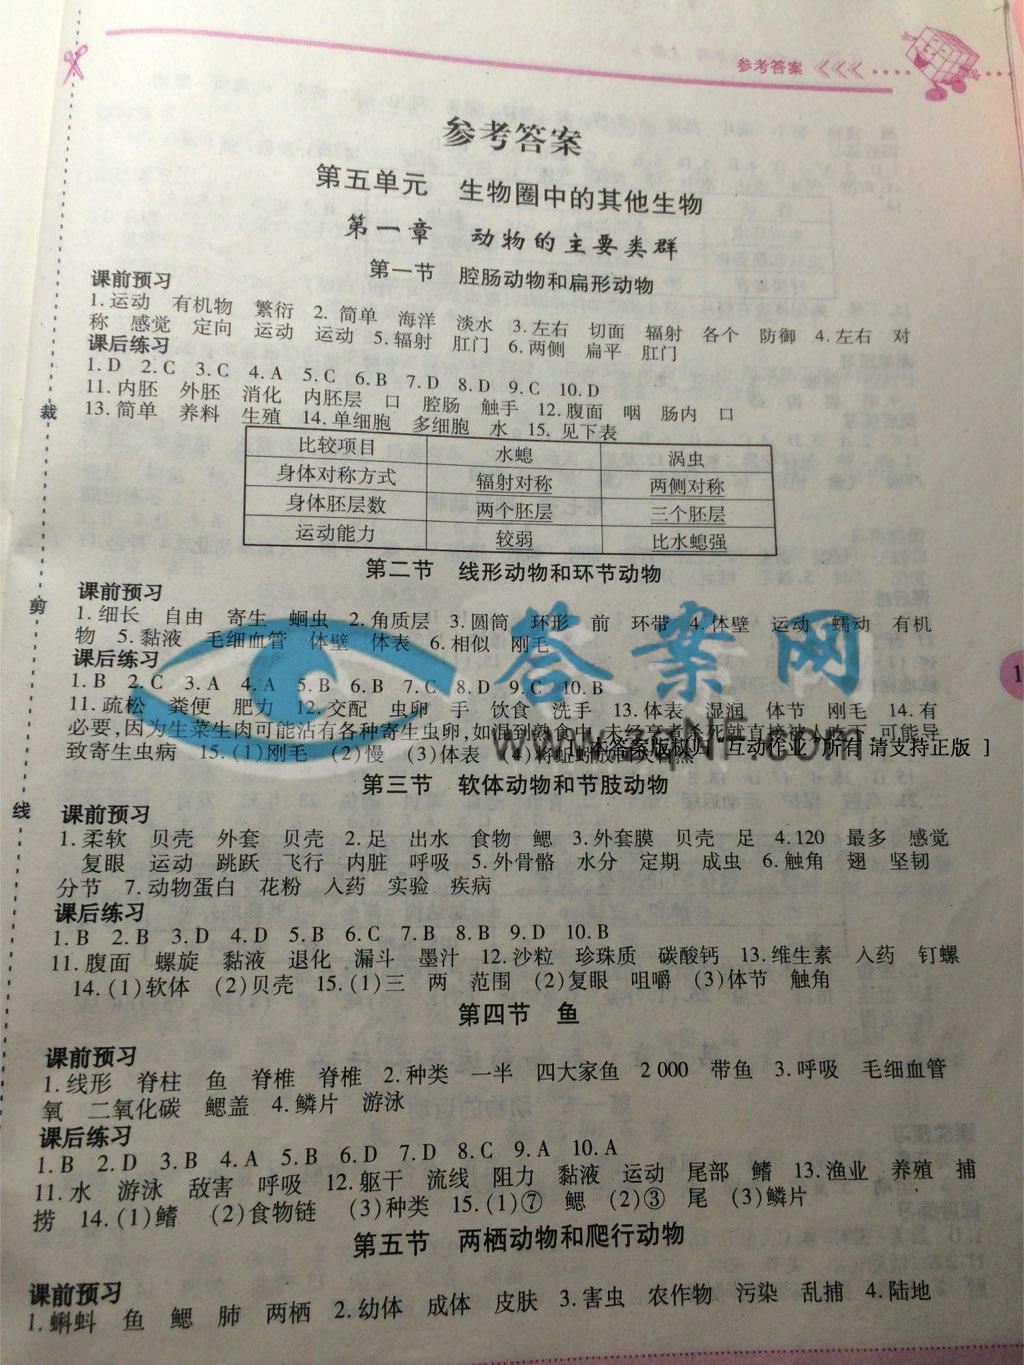 参考答案
参考答案
第五单元 生物圈中的其他生物
第一章 动物的主要类群
第一节 腔肠动物和扁形动物
课前预习
1.运动 有机物 繁衍 2.简单 海洋 淡水 3.左右 切面 辐射 各个 防御 4.左右 对
称 感觉 定向 运动 运动 5.辐射 肛门 6.两侧 扁平 肛门
课后练习
1.D 2.C 3.C 4.A 5.C 6.B 7.D 8.D 9.C 10.D
11.内胚 外胚 消化 内胚层 口 腔肠 触手 12.腹面 咽 肠内 口
13.简单 养料 生殖 14.单细胞 多细胞 水 15.见下表
比较项目 水螅 涡虫
身体对称方式 辐射对称 两侧对称
身体胚层数 两个胚层 三个胚层
运动能力 较弱 比水螅强
第二节 线形动物和环节动物
课前预习
1.细长 自由 寄生 蛔虫 2.角质层 3.圆筒 环形 前 环带 4.体壁 运动 蠕动 有机
物 5.黏液 毛细血管 体壁 体表 6.相似 刚毛
课后练习
1.B 2.C 3.A 4.A 5.B 6.B 7.C 8.D 9.C 10.B
11.疏松 粪便 肥力 12.交配 虫卵 手 饮食 洗手 13.体表 湿润 体节 刚毛 14.有
必要,因为生菜生肉可能沾有各种寄生虫卵,如混到熟食中,未经烹煮杀死就直接被人吃下,可能导
致寄生虫病 15.(1)刚毛 (2)慢 (3)体表 (4)将蚯蚓放回大自然
答案网
www.zqnf.com
[ 本答案版权归“互动作业”所有 请支持正版 ]
第三节 软体动物和节肢动物
课前预习
1.柔软 贝壳 外套 贝壳 2.足 出水 食物 鳃 3.外套膜 贝壳 足 4.120 最多 感觉
复眼 运动 跳跃 飞行 内脏 呼吸 5.外骨骼 水分 定期 成虫 6.触角 翅 坚韧
分节 7.动物蛋白 花粉 入药 实验 疾病
课后练习
1.B 2.B 3.D 4.D 5.B 6.C 7.B 8.B 9.D 10.B
11.腹面 螺旋 黏液 退化 漏斗 墨汁 12.沙粒 珍珠质 碳酸钙 13.维生素 入药 钉螺
14.(1)软体 (2)贝壳 15.(1)三 两 范围 (2)复眼 咀嚼 (3)体节 触角
第四节 鱼
课前预习
1.线形 脊柱 鱼 脊椎 脊椎 2.种类 一半 四大家鱼 2 000 带鱼 3.呼吸 毛细血管
氧 二氧化碳 鳃盖 4.鳞片 游泳
课后练习
1.B 2.D 3.B 4.A 5.B 6.D 7.D 8.C 9.A 10.A
11.水 游泳 敌害 呼吸 12.躯干 流线 阻力 黏液 运动 尾部 鳍 13.渔业 养殖 捕
捞 14.(1)鳍 (2)食物链 (3)种类 15.(1)⑦ 鳃 (2)③ 尾 (3)鳞片
第五节 两栖动物和爬行动物
课前预习
1.蝌蚪 鱼 鳃 肺 两栖 2.幼体 成体 皮肤 3.害虫 农作物 污染 乱捕 4.陆地
裁
剪
线
1